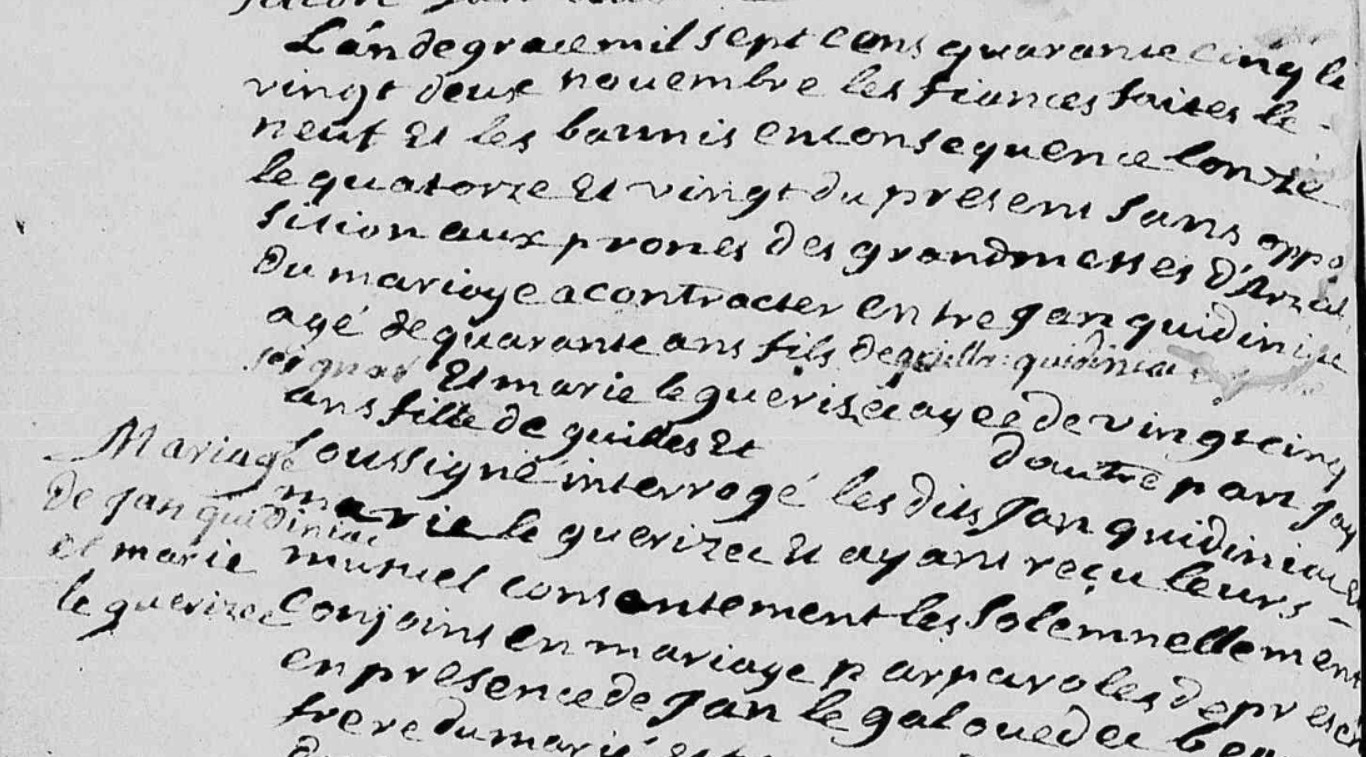 L'an de grace mil sept cens quarante cinq le
vingt deux novembre les fiances faites le
neuf et les bannis en consequence lonzie
le quatorze et vingt du present sans oppo
sition aux prones des grandmesses d'Arzal
du mariage a contracter entre Jan quidiniac
agé de quarante ans fils de quidiniac
Et marie le guerizec agee de vingt cinq
ans fille de guilles Et d'autre part jay
soussigné interrogé les dits Jan quidiniac et
marie le guerizec et ayant reçu leurs
mutuel consentement les solemnellement
conjoins en mariage par paroles de present
en presence de Jan le galouedec beau
frere du marié et
Mariage
de Jan quidiniac
et marie
le guerizec